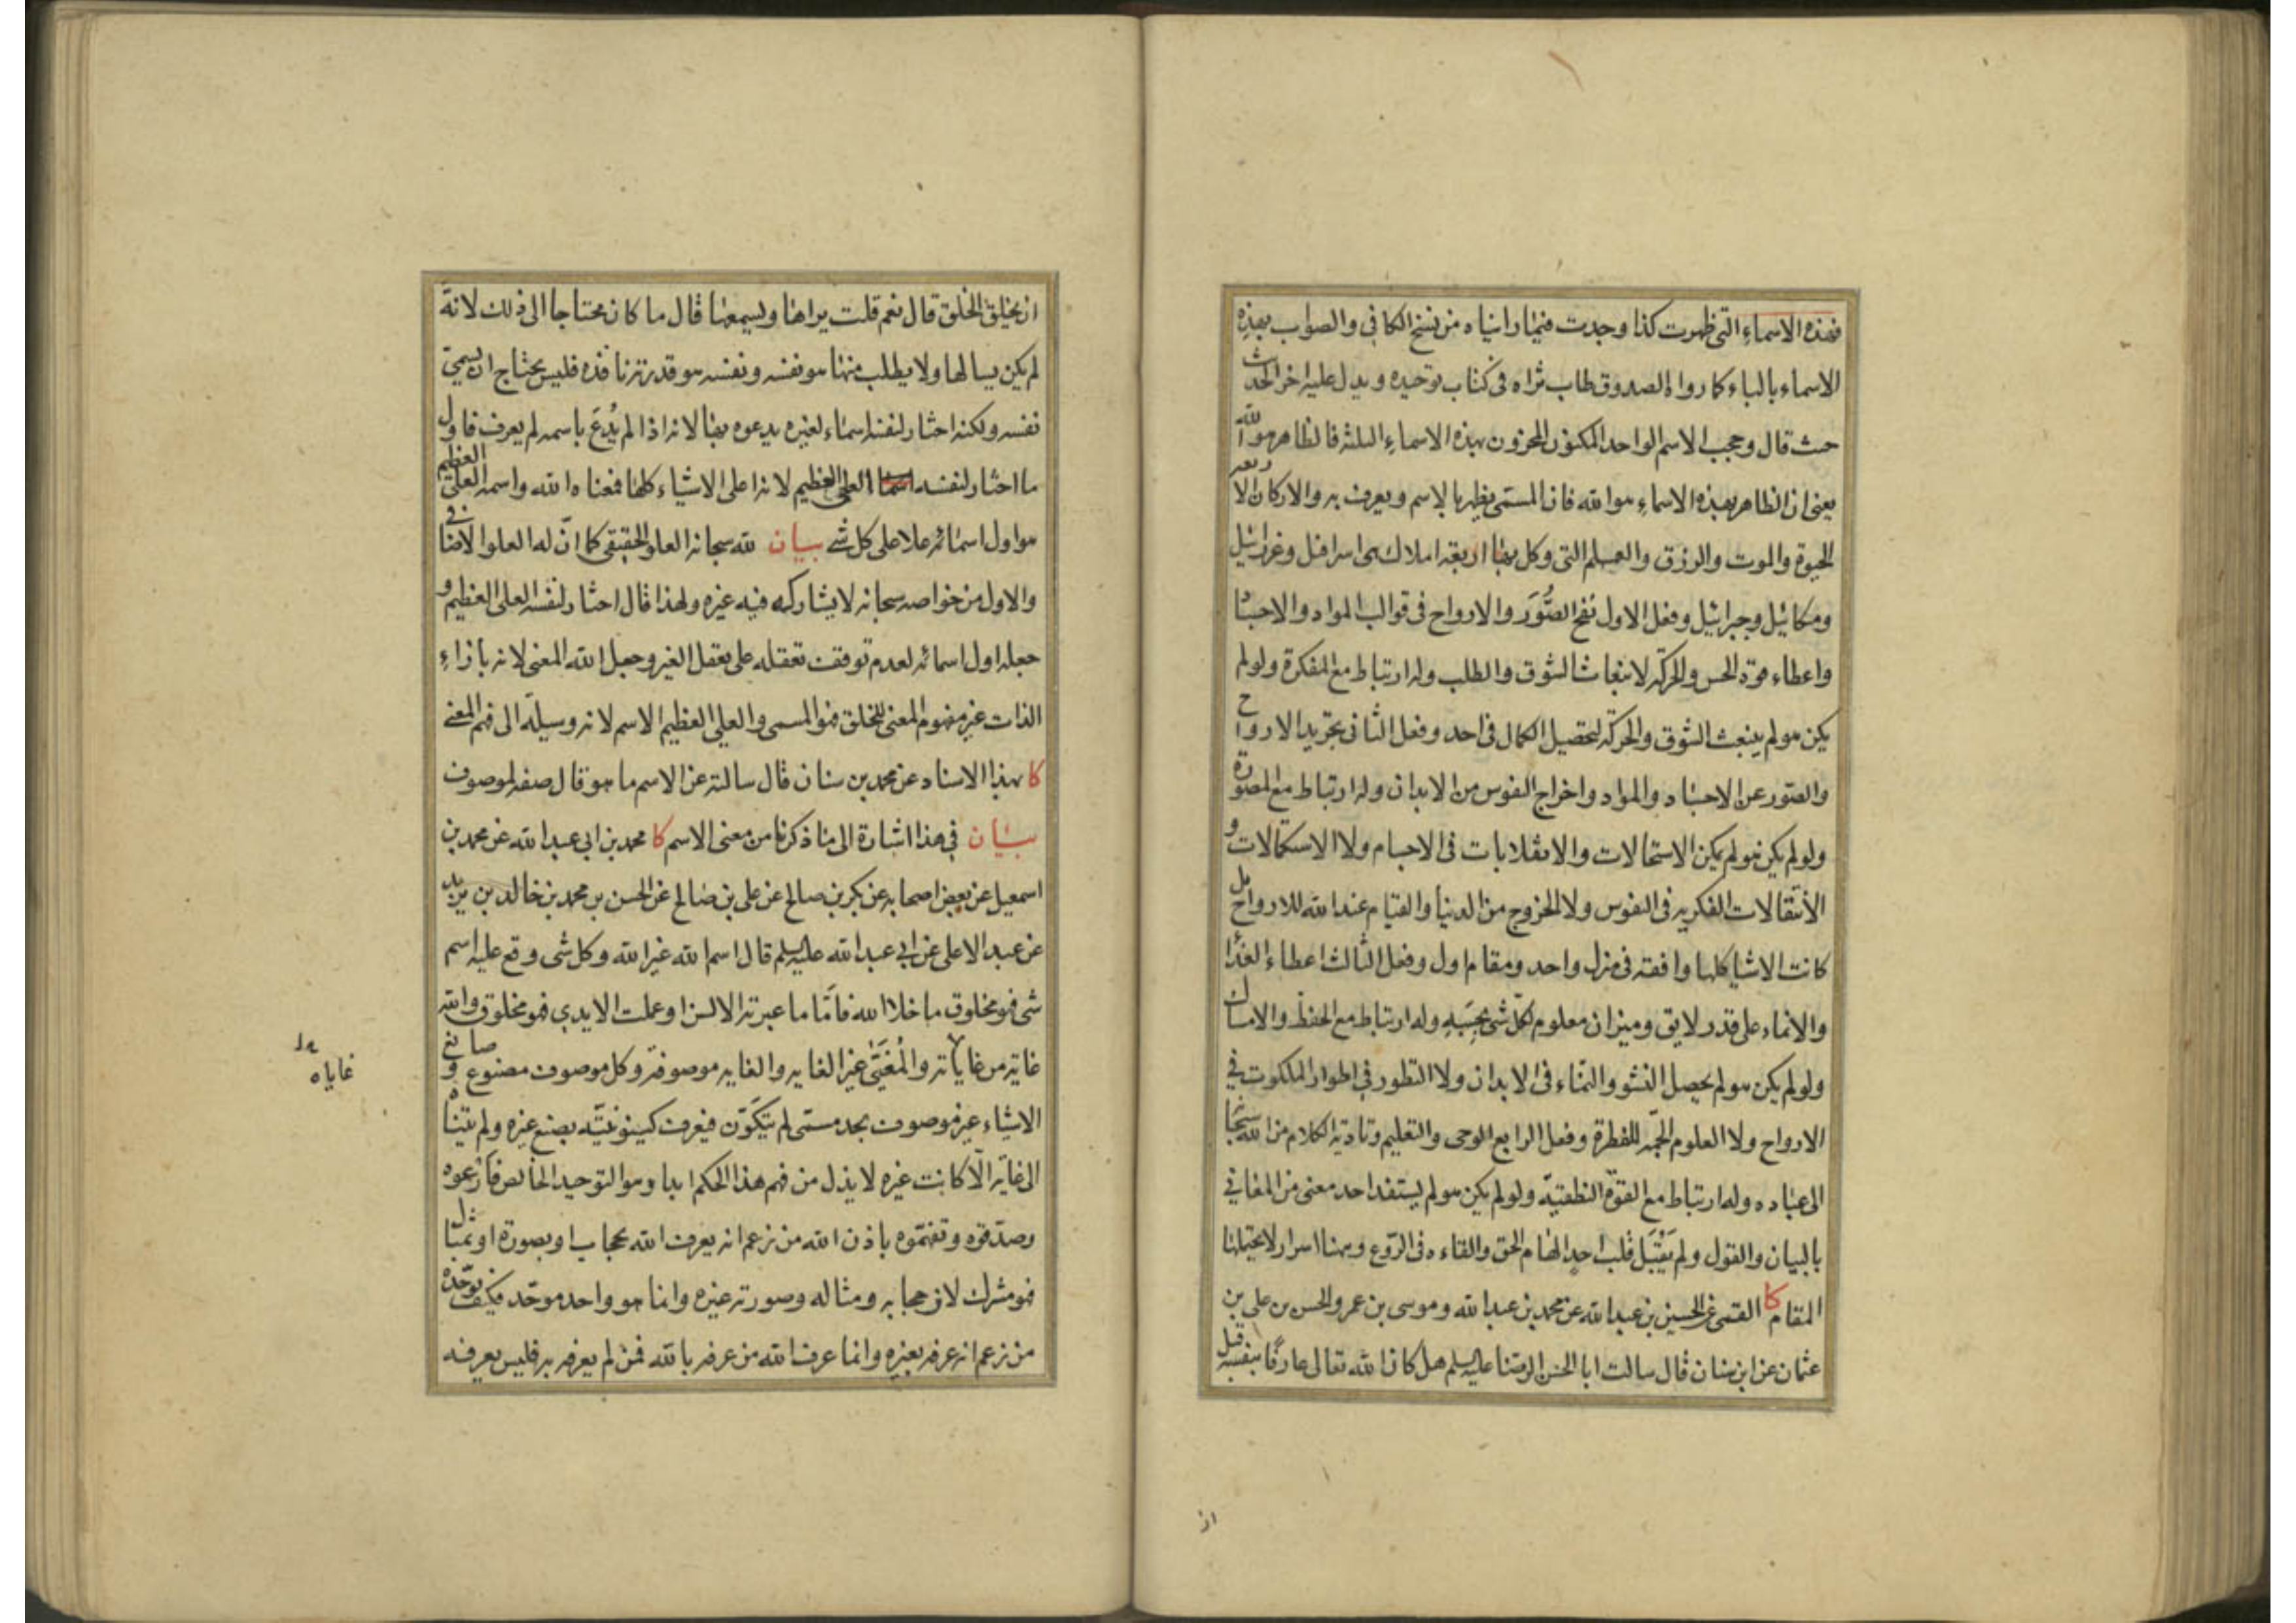 فهذه الاسماء التي ظهرت كذا وجدت فيما رايناه من نسخ الكافي والصواب بهذه
الاسماء بالباء كما رواه الصدوق طاب ثراه في كتاب توحيده ويدل عليه اخر الحديث
حيث قال وحجب الاسم الواحد المكنون المخزون بهذه الاسماء الثلثة فالظاهر هو الله
يعني ان الظاهر بهذه الاسماء هو الله فان المسمى يظهر بالاسم ويعرف به والاركان الاربعة
الحيوة والموت والرزق والعلم التي وكل بها اربعة املاك هي اسرافيل وعزرائيل
وميكائيل وجبرائيل وفعل الاول نفخ الصُّوَر والارواح في قوالب المواد والاجساد
واعطاء قوة الحس والحركة لانبعاث الشوق والطلب وله ارتباط مع المفكرة ولو لم
يكن هو لم ينبعث الشوق والحركة لتحصيل الكمال في احد وفعل الثاني تجريد الارواح
والصور عن الاجساد والمواد واخراج النفوس من الابدان وله ارتباط مع المصورة
ولو لم يكن هو لم يكن الاستحالات والانقلابات في الاجسام ولا الاستكمالات و
الانتقالات الفكرية في النفوس ولا الخروج من الدنيا والقيام عند الله للارواح بل
كانت الاشيا كلها واقفة في منزل واحد ومقام اول وفعل الثالث اعطاء الغذا
والانماء على قدر لايق وميزان معلوم لكل شي بحسبه وله ارتباط مع الحفظ والامساك
ولو لم يكن هو لم يحصل النشو والنماء في الابدان ولا التطور في اطوار الملكوت في
الارواح ولا العلوم الجمة للفطرة وفعل الرابع الوحي والتعليم وتادية الكلام من الله سبحانه
الى عباده وله ارتباط مع القوة النطقية ولو لم يكن هو لم يستفد احد معنى من المعاني
بالبيان والقول ولم يَقْبَل قلب احدٍ الهام الحق والقاءه في الرّوع وههنا اسرار لا يحتملها
المقام كا القمي عن الحسين بن عبد الله عن محمد بن عبد الله وموسى بن عمر والحسن بن علي بن
عثمان عن ابن سنان قال سالت ابا الحسن الرضا عليه السلم هل كان الله تعالى عارفًا بنفسه قبل
ان
ان يخلق الخلق قال نعم قلت يراها ويسمعها قال ما كان محتاجا الى ذلك لانه
لم يكن يسالها ولا يطلب منها هو نفسه ونفسه هو قدرته نافذه فليس يحتاج ان يسمي
نفسه ولكنه اختار لنفسه اسماء لغيره يدعوه بها لانه اذا لم يُدْعَ باسمه لم يعرف فاول
ما اختار لنفسه العلي العظيم لانه اعلى الاشياء كلها فمعناه الله واسمه العلي العظيم
هو اول اسمائه علا على كل شي بيان لله سبحانه العلو الحقيقي كما انّ له العلو الاضافي
والاول من خواصه سبحانه لا يشاركه فيه غيره ولهذا قال اختار لنفسه العلي العظيم و
جعله اول اسمائه لعدم توقف تعقله على تعقل الغير وجعل الله المعنى لانه بازاء
الذات غير مفهوم المعنى للخلق فهو المسمى والعلي العظيم الاسم لانه وسيلة الى فهم المعنى
كا بهذا الاسناد عن محمد بن سنان قال سالته عن الاسم ما هو قال صفة لموصوف
بيان في هذا اشارة الى ما ذكرنا من معنى الاسم كا محمد بن ابي عبد الله عن محمد بن
اسمعيل عن بعض اصحابه عن بكر بن صالح عن علي بن صالح عن الحسن بن محمد بن خالد بن يزيد
عن عبد الاعلى عن ابي عبد الله عليه السلم قال اسم الله غير الله وكل شي وقع عليه اسم
شي فهو مخلوق ما خلا الله فامّا ما عبرته الالسن او عملت الايدي فهو مخلوق والله
غاية من غاياته والمُغَيَّى غير الغاية والغاية موصوفة وكل موصوف مصنوع وصانع
الاشياء غير موصوف بحد مسمّى لم يتكوّن فيعرف كينونيّته بصنع غيره ولم يتناه
الى غاية الّا كانت غيره لا يذل من فهم هذا الحكم ابدا وهو التوحيد الخالص فارعوه
وصدّقوه وتفهّموه باذن الله من زعم انه يعرف الله بحجاب او بصورة او بمثال
فهو مشرك لان حجابه ومثاله وصورته غيره وانما هو واحد موحّد فكيف يوحّده
من زعم انه عرفه بغيره وانما عرف الله من عرفه بالله فمن لم يعرفه به فليس يعرفه
غاياه